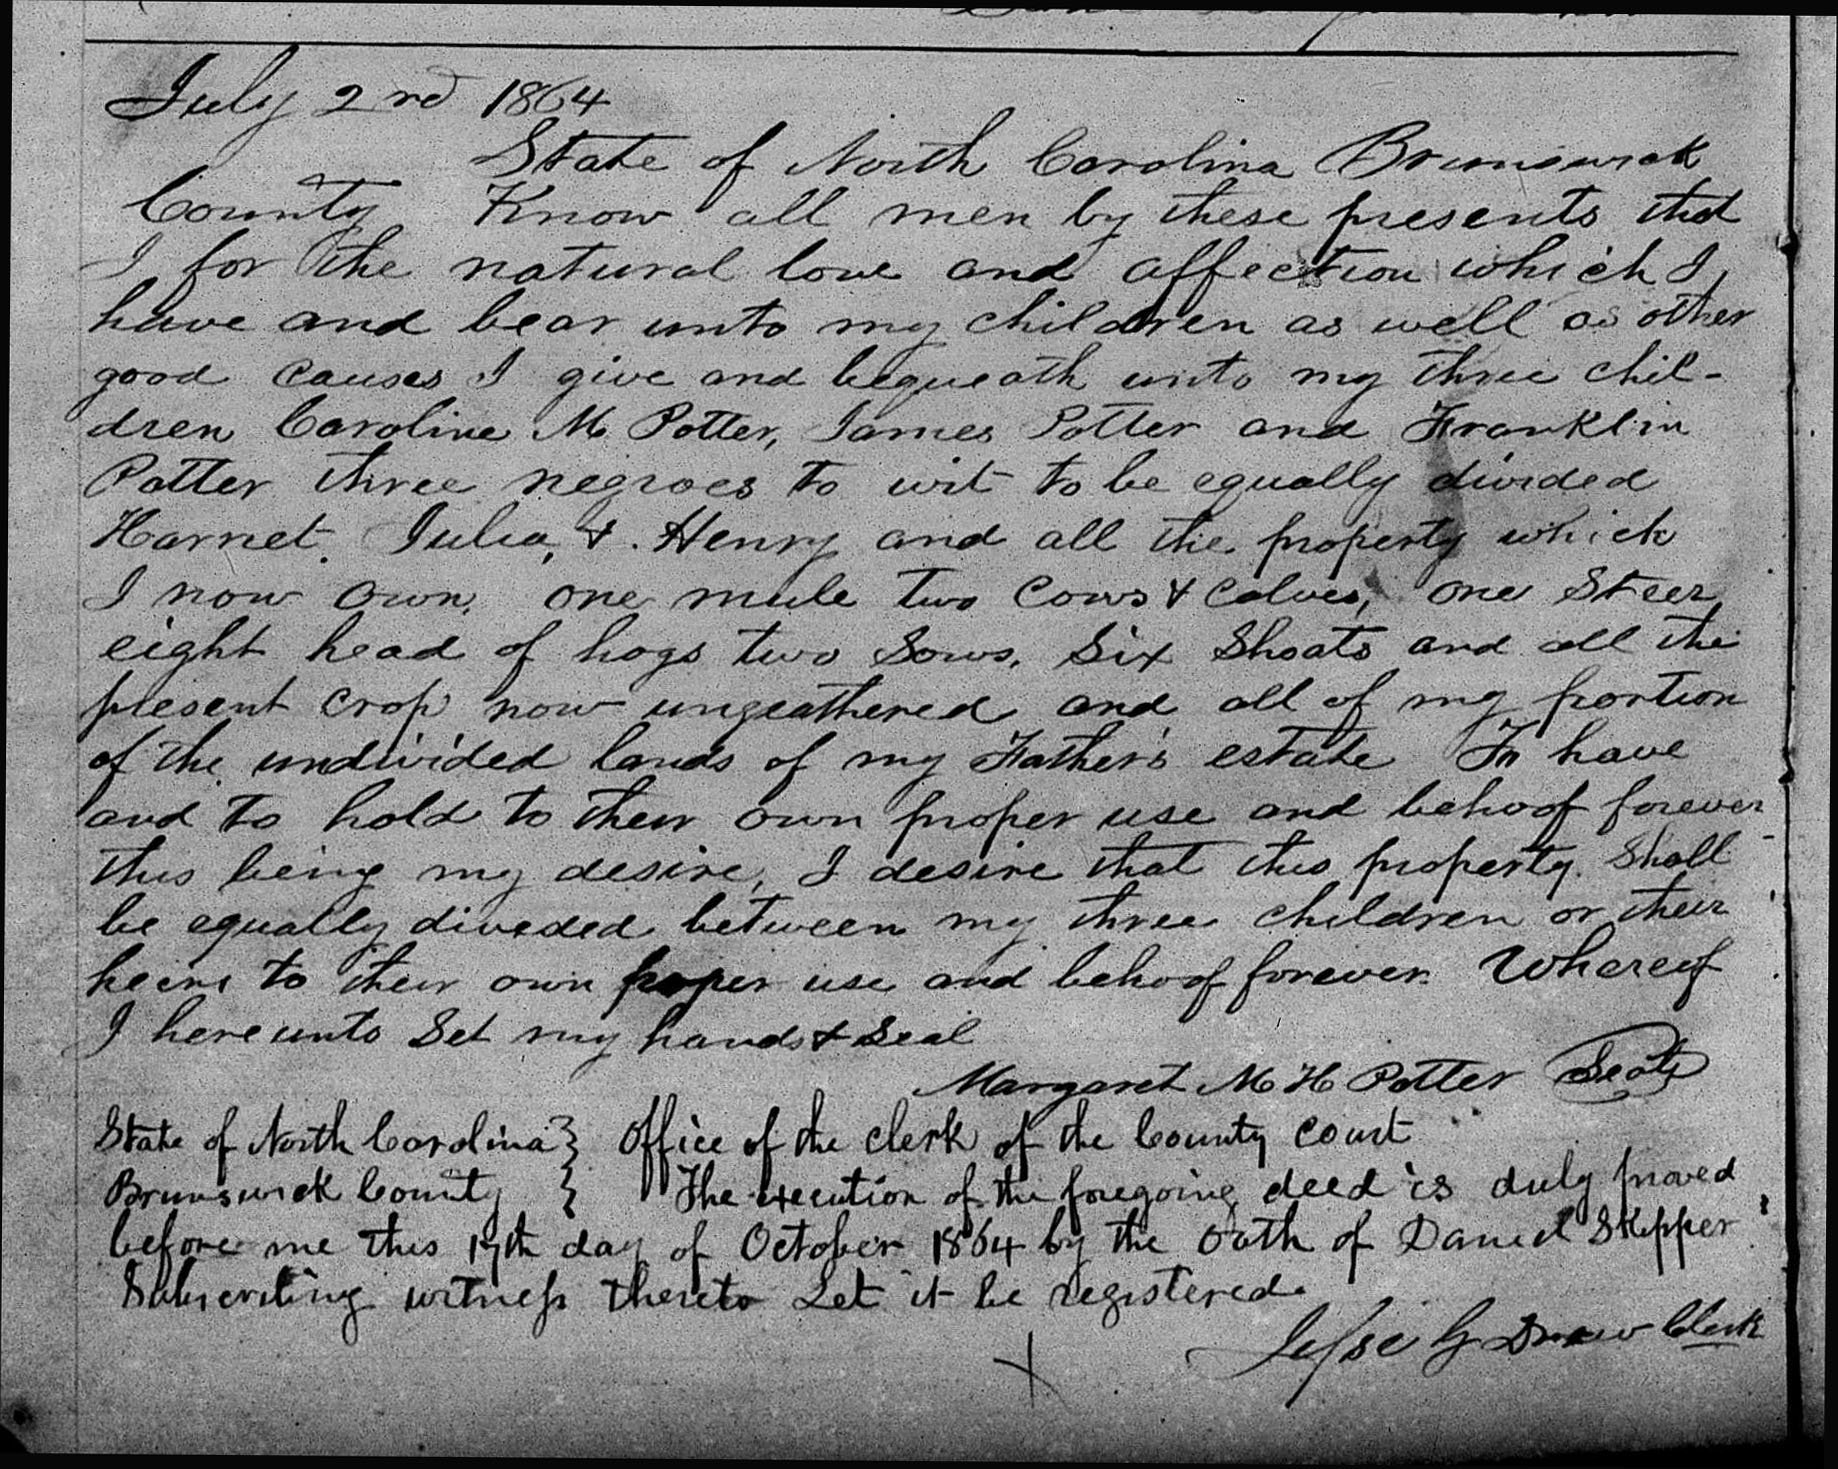 July 2nd 1864
State of North Carolina Brunswick
County Know all men by these presents that
I for the natural love and affection which I
have and bear unto my children as well as other
good causes I give and bequeath unto my three chil-
dren Caroline M Potter, James Potter and Franklin
Potter three negroes to wit to be equally divided
Harriet. Julia, & Henry and all the property which
I now own. one mule two Cows & Calves, one Steer
eight head of hogs two Sows. Six Shoats and all the
present crop now ungeathered and all of my portion
of the undivided lands of my Father's estate To have
and to hold to their own proper use and behoof forever
this being my desire, I desire that this property shall
be equally diveded between my three children or their
heirs to their own proper use and behoof forever. Whereof
I hereunto Set my hands & Seal
Margaret M H Potter Seal
State of North Carolina } Office of the Clerk of the County Court
Brunswick County } The execution of the foregoing deed is duly proved
before me this 17th day of October 1864 by the oath of Daniel Skipper
Subscribing witness thereto Let it be registered.
Jesse G Drew Clerk